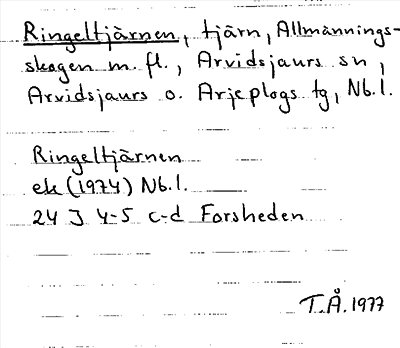 Ringeltjärnen, tjärn, Allmännings-
skogen m. fl., Arvidsjaurs sn,
Arvidsjaurs o. Arjeplogs tg, Nb. l.
Ringeltjärnen
ek (1974) Nb. l.
24 J 4-5 c-d Forsheden
T.Å. 1977